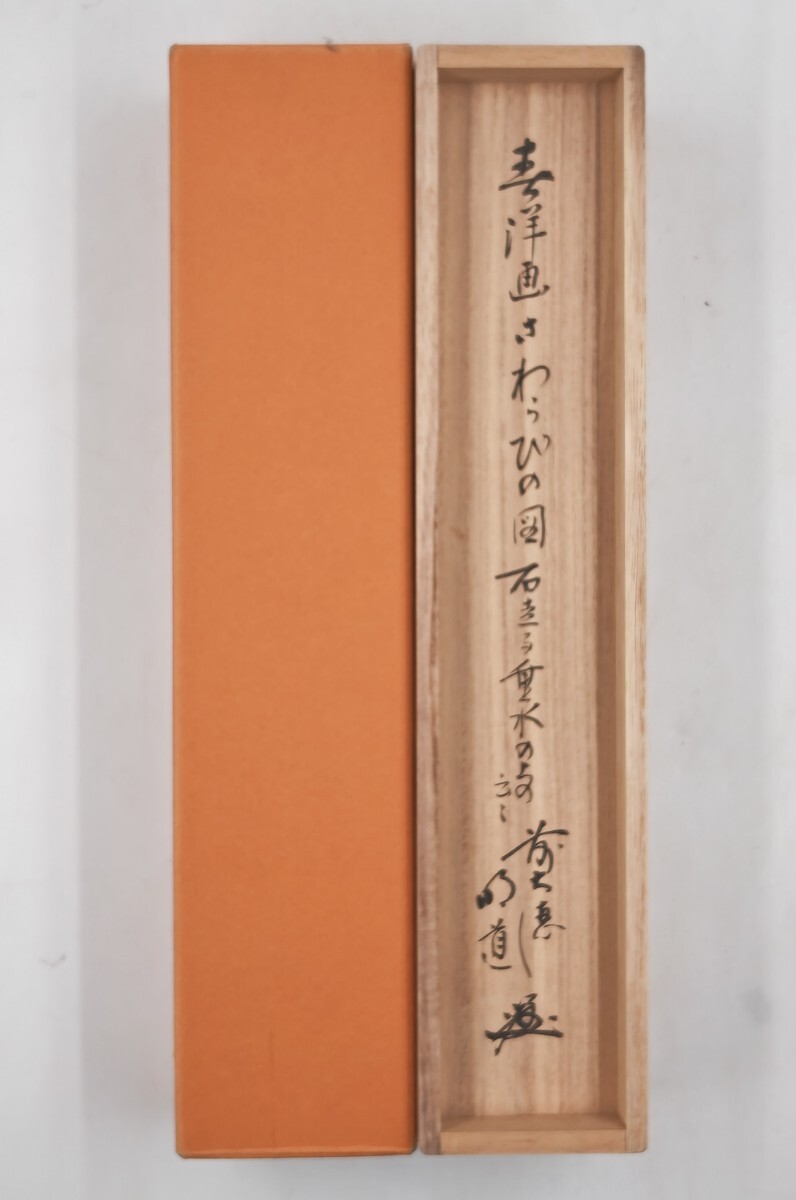 春洋画さわらびの図 石走る垂水の
前大徳
明道